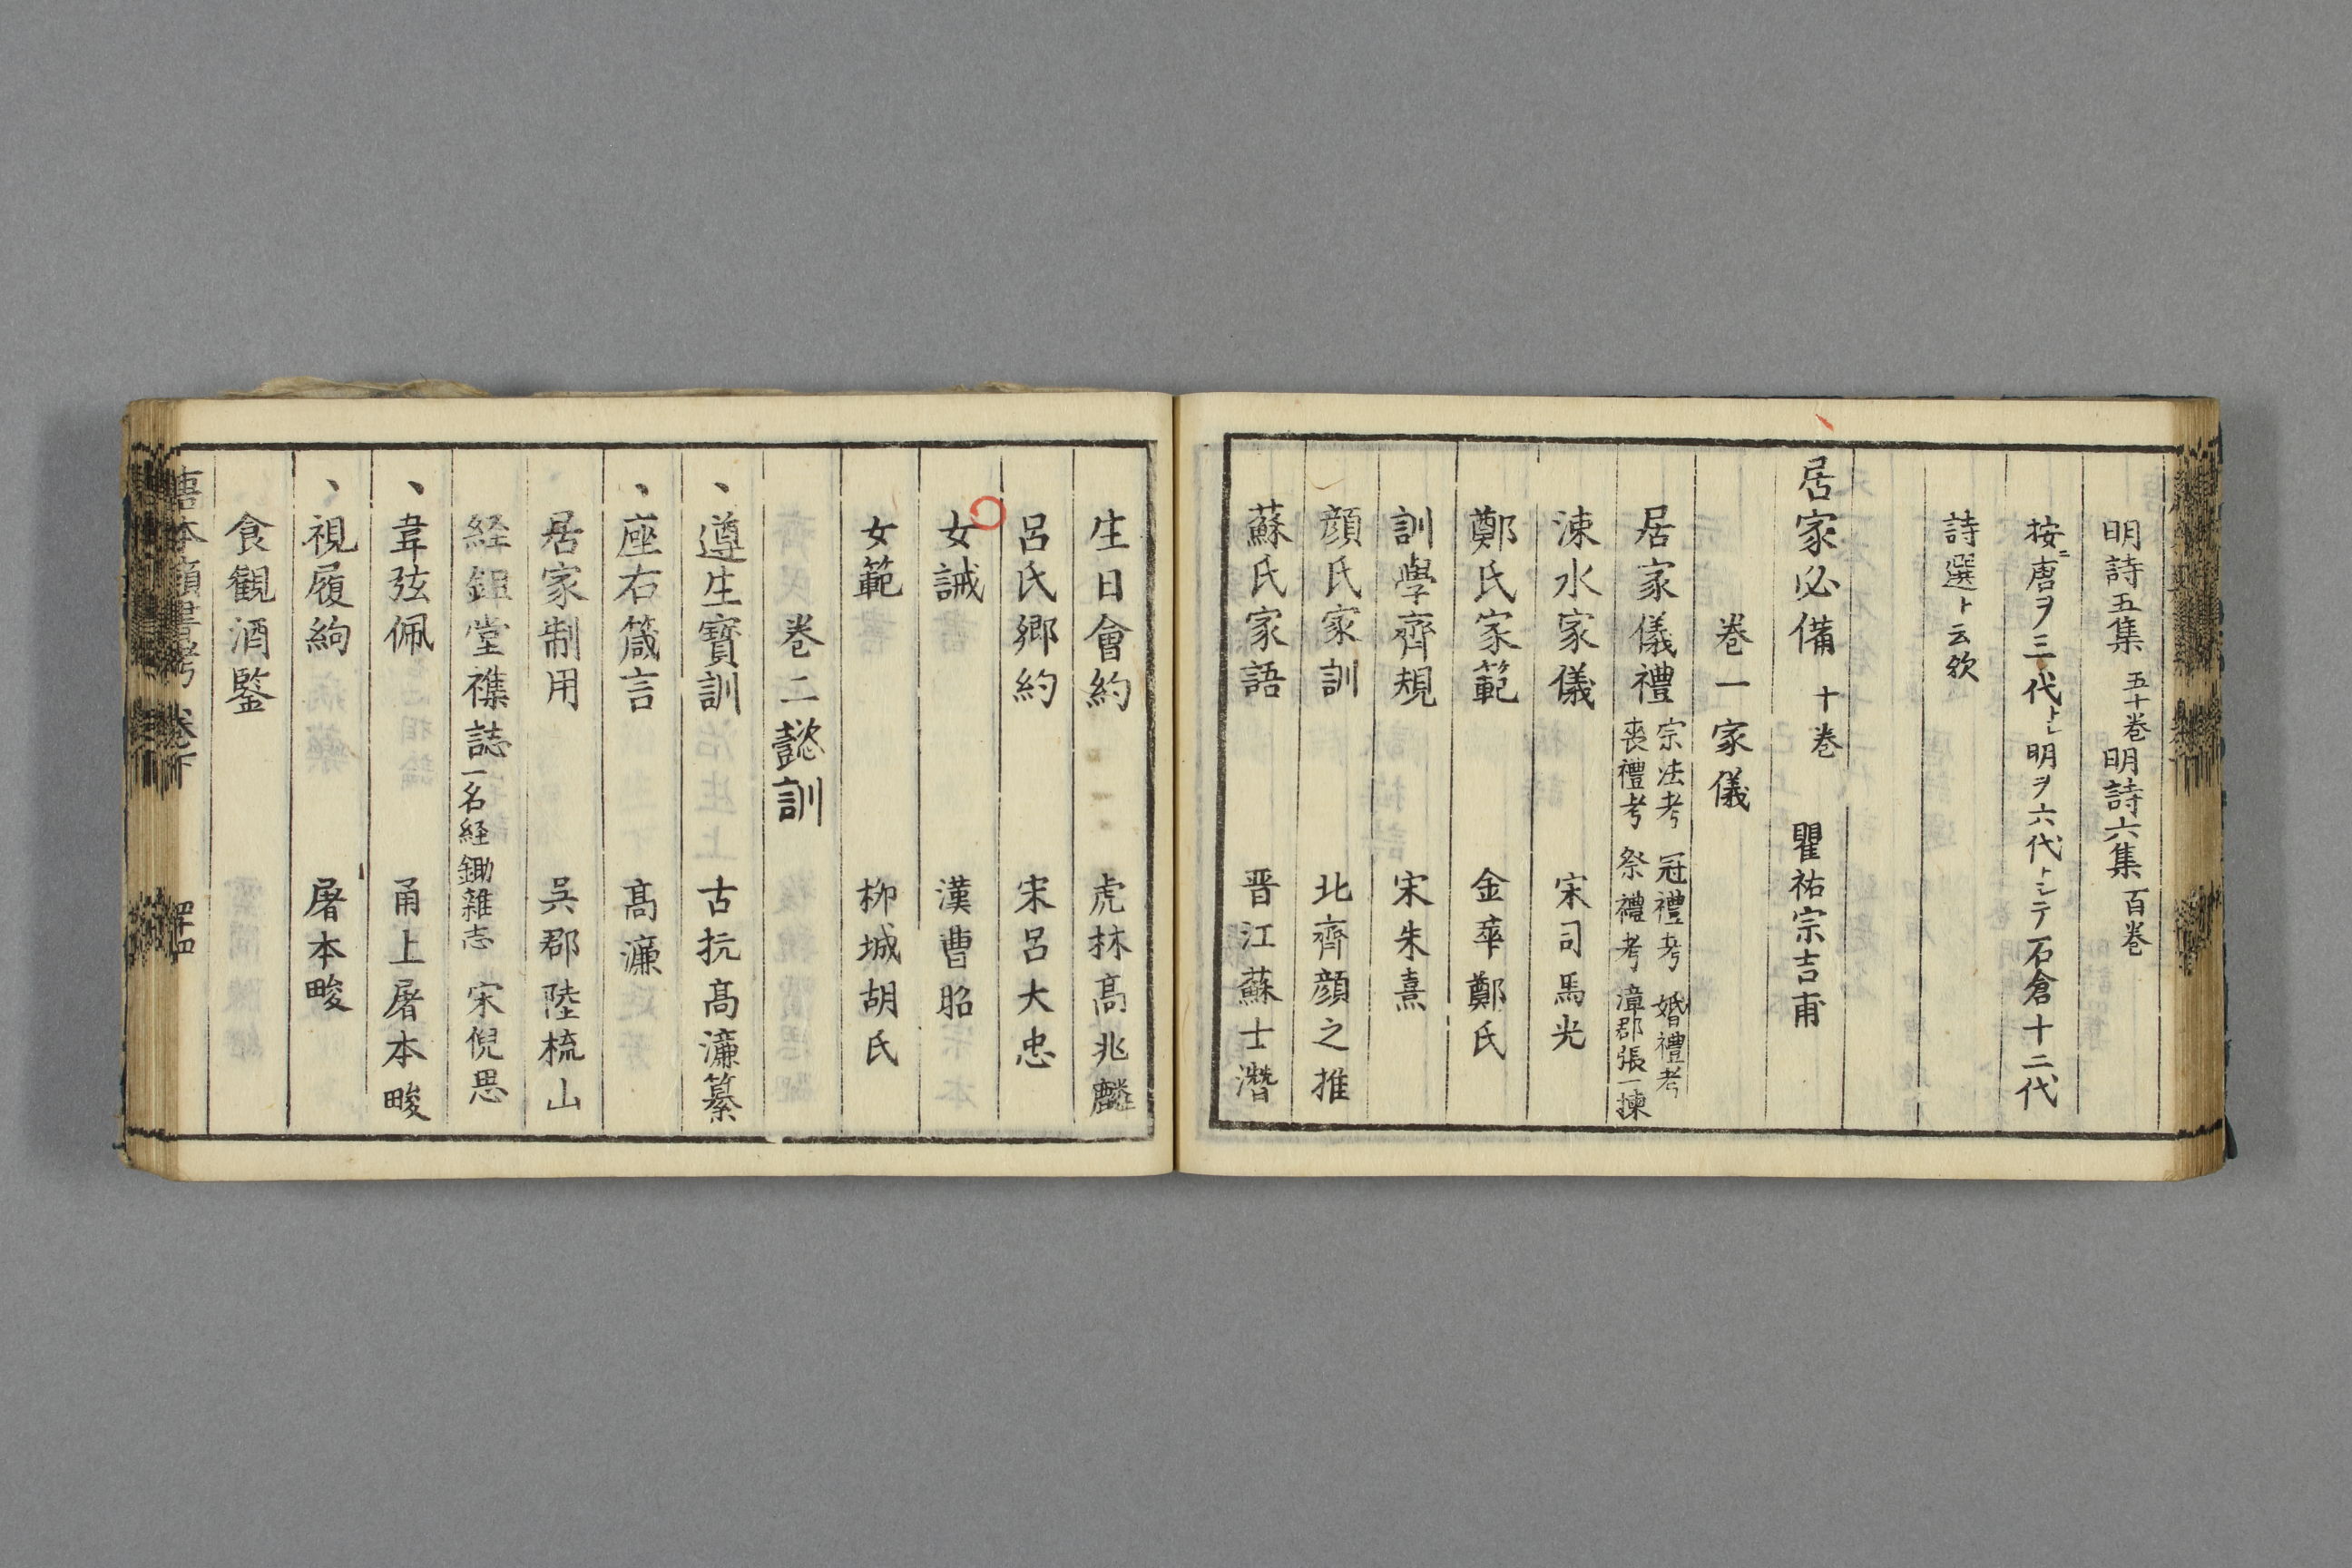 明詩五集 五十巻 明詩六集 百巻
按ニ唐ヲ三代トシ明ヲ六代トシテ石倉十二代
詩選ト云欤
居家必備 十巻 瞿祐宗吉甫
巻一家儀
居家儀禮 宗法考 冠禮考 婚禮考
喪禮考 祭禮考 漳郡張一揀
涑水家儀 宋司馬光
鄭氏家範 金華鄭氏
訓學齊規 宋朱熹
顔氏家訓 北齊顔之推
蘇氏家語 晋江蘇士潛
生日會約 虎林高兆麟
呂氏郷約 宋呂大忠
女誡 漢曹昭
女範 柳城胡氏
巻二懿訓
、遵生寳訓 古抗高濂纂
、座右箴言 高濂
居家制用 呉郡陸梳山
経鉏堂襍誌 一名経鋤雜志 宋倪思
、韋弦佩 甬上屠本畯
、視履絇 屠本畯
食観酒鑒
唐本類書考 巻下 四十四